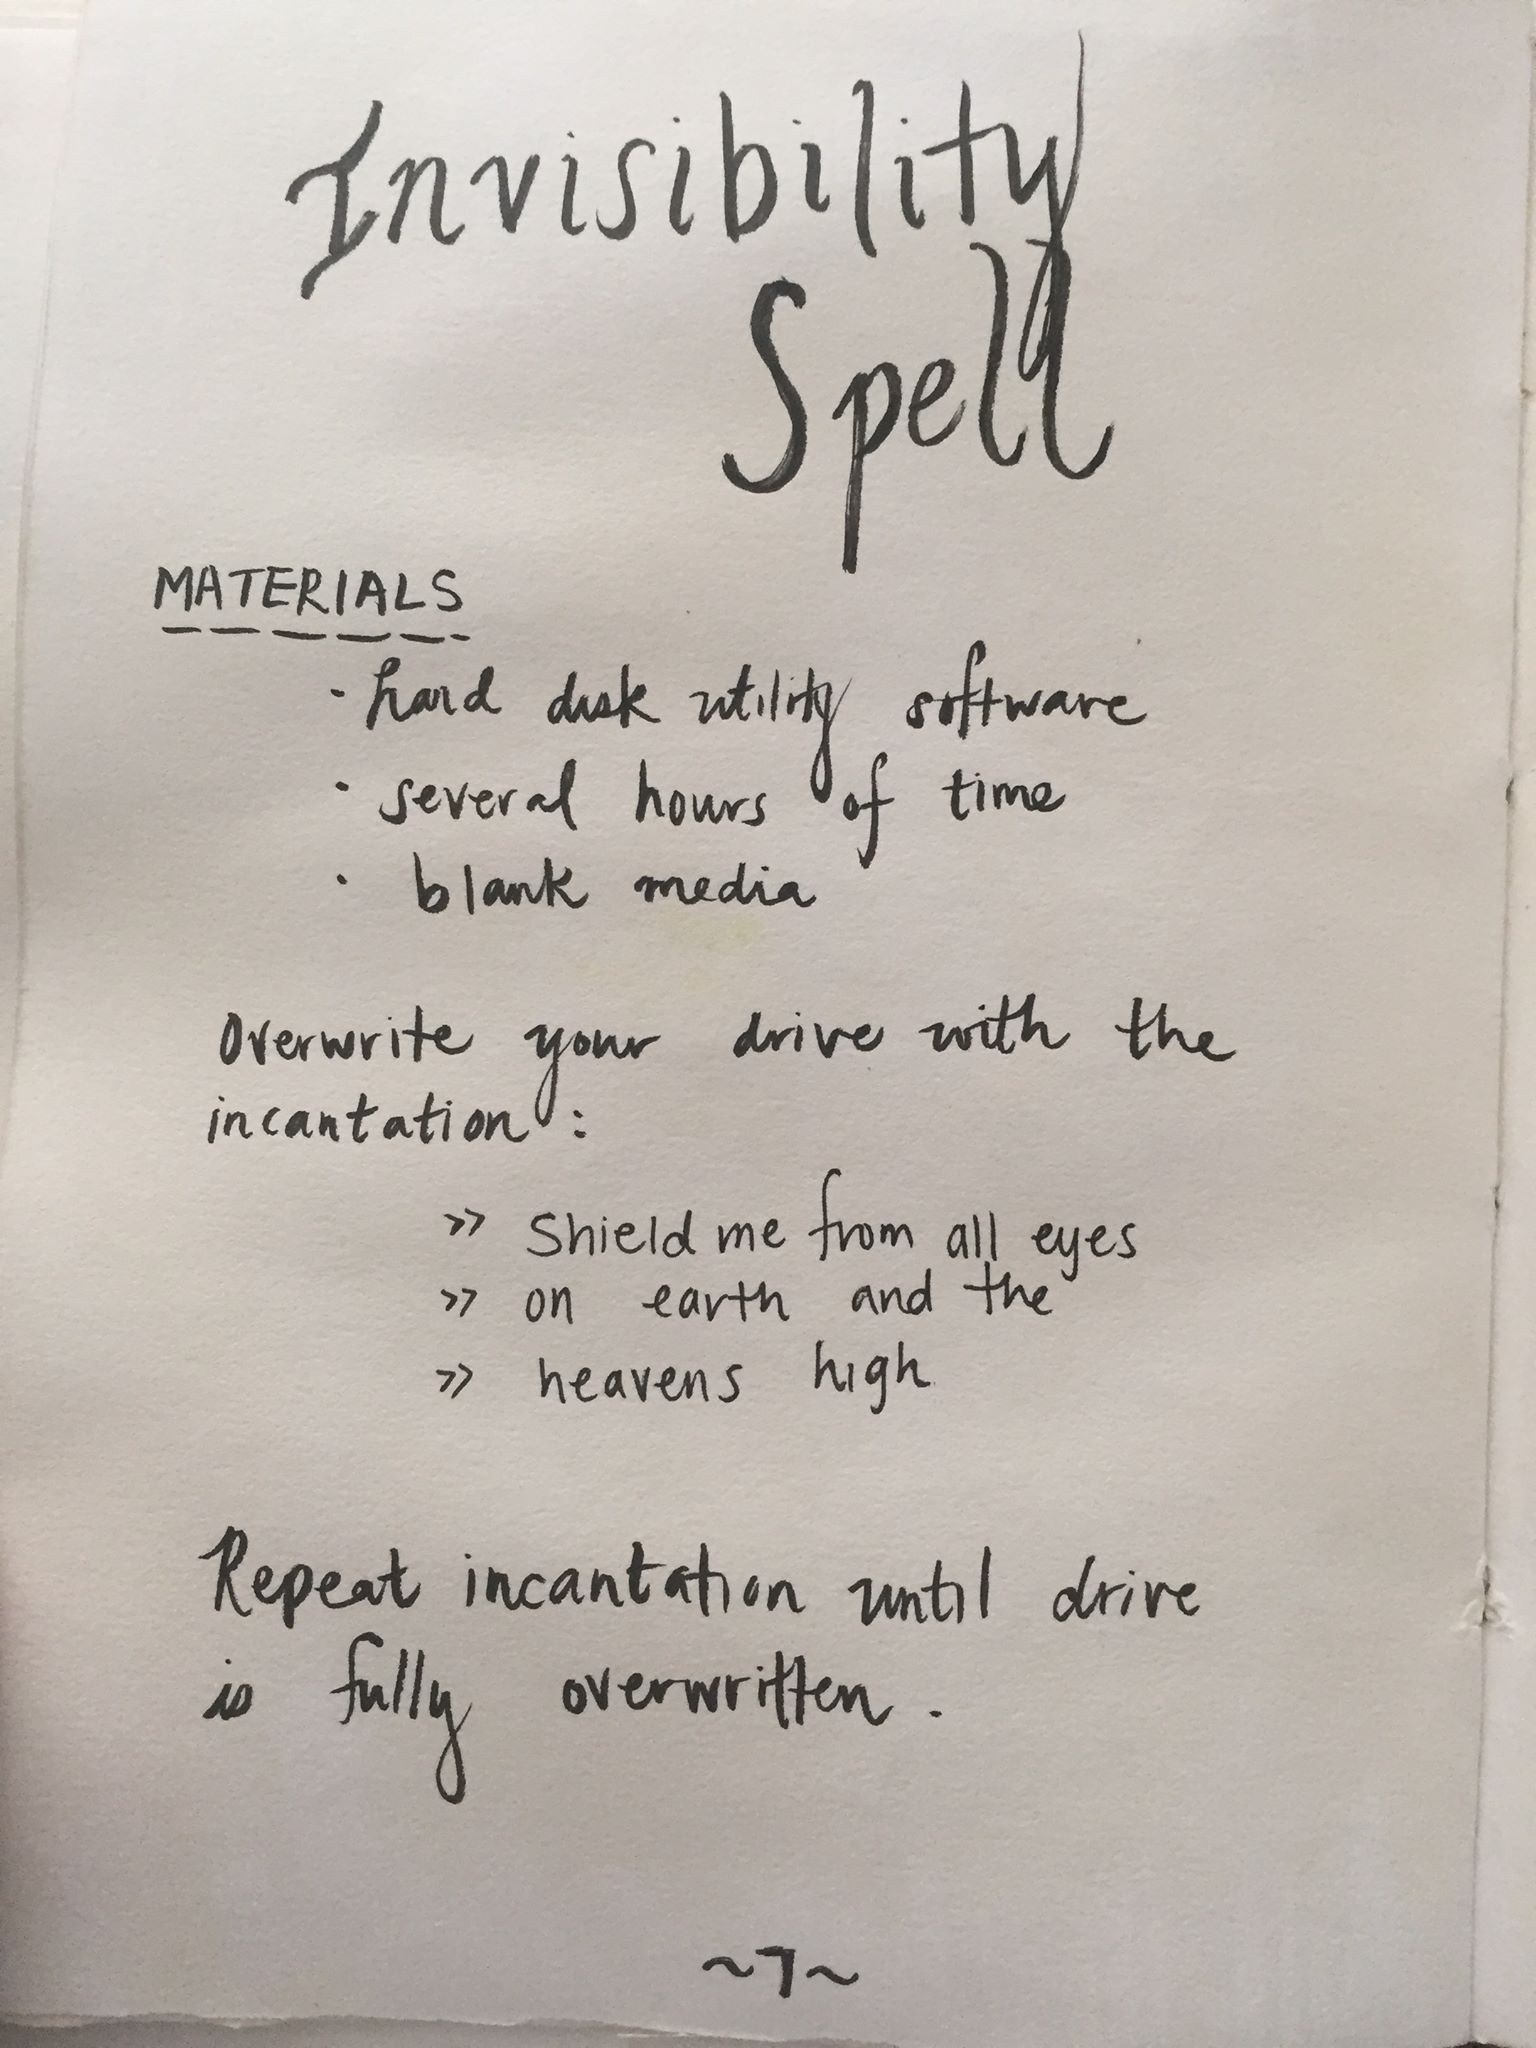 Invisibility
Spell
MATERIALS
· hard disk utility software
· several hours of time
· blank media
Overwrite your drive with the
incantation:
>> Shield me from all eyes
>> on earth and the
>> heavens high
Repeat incantation until drive
is fully overwritten.
~7~